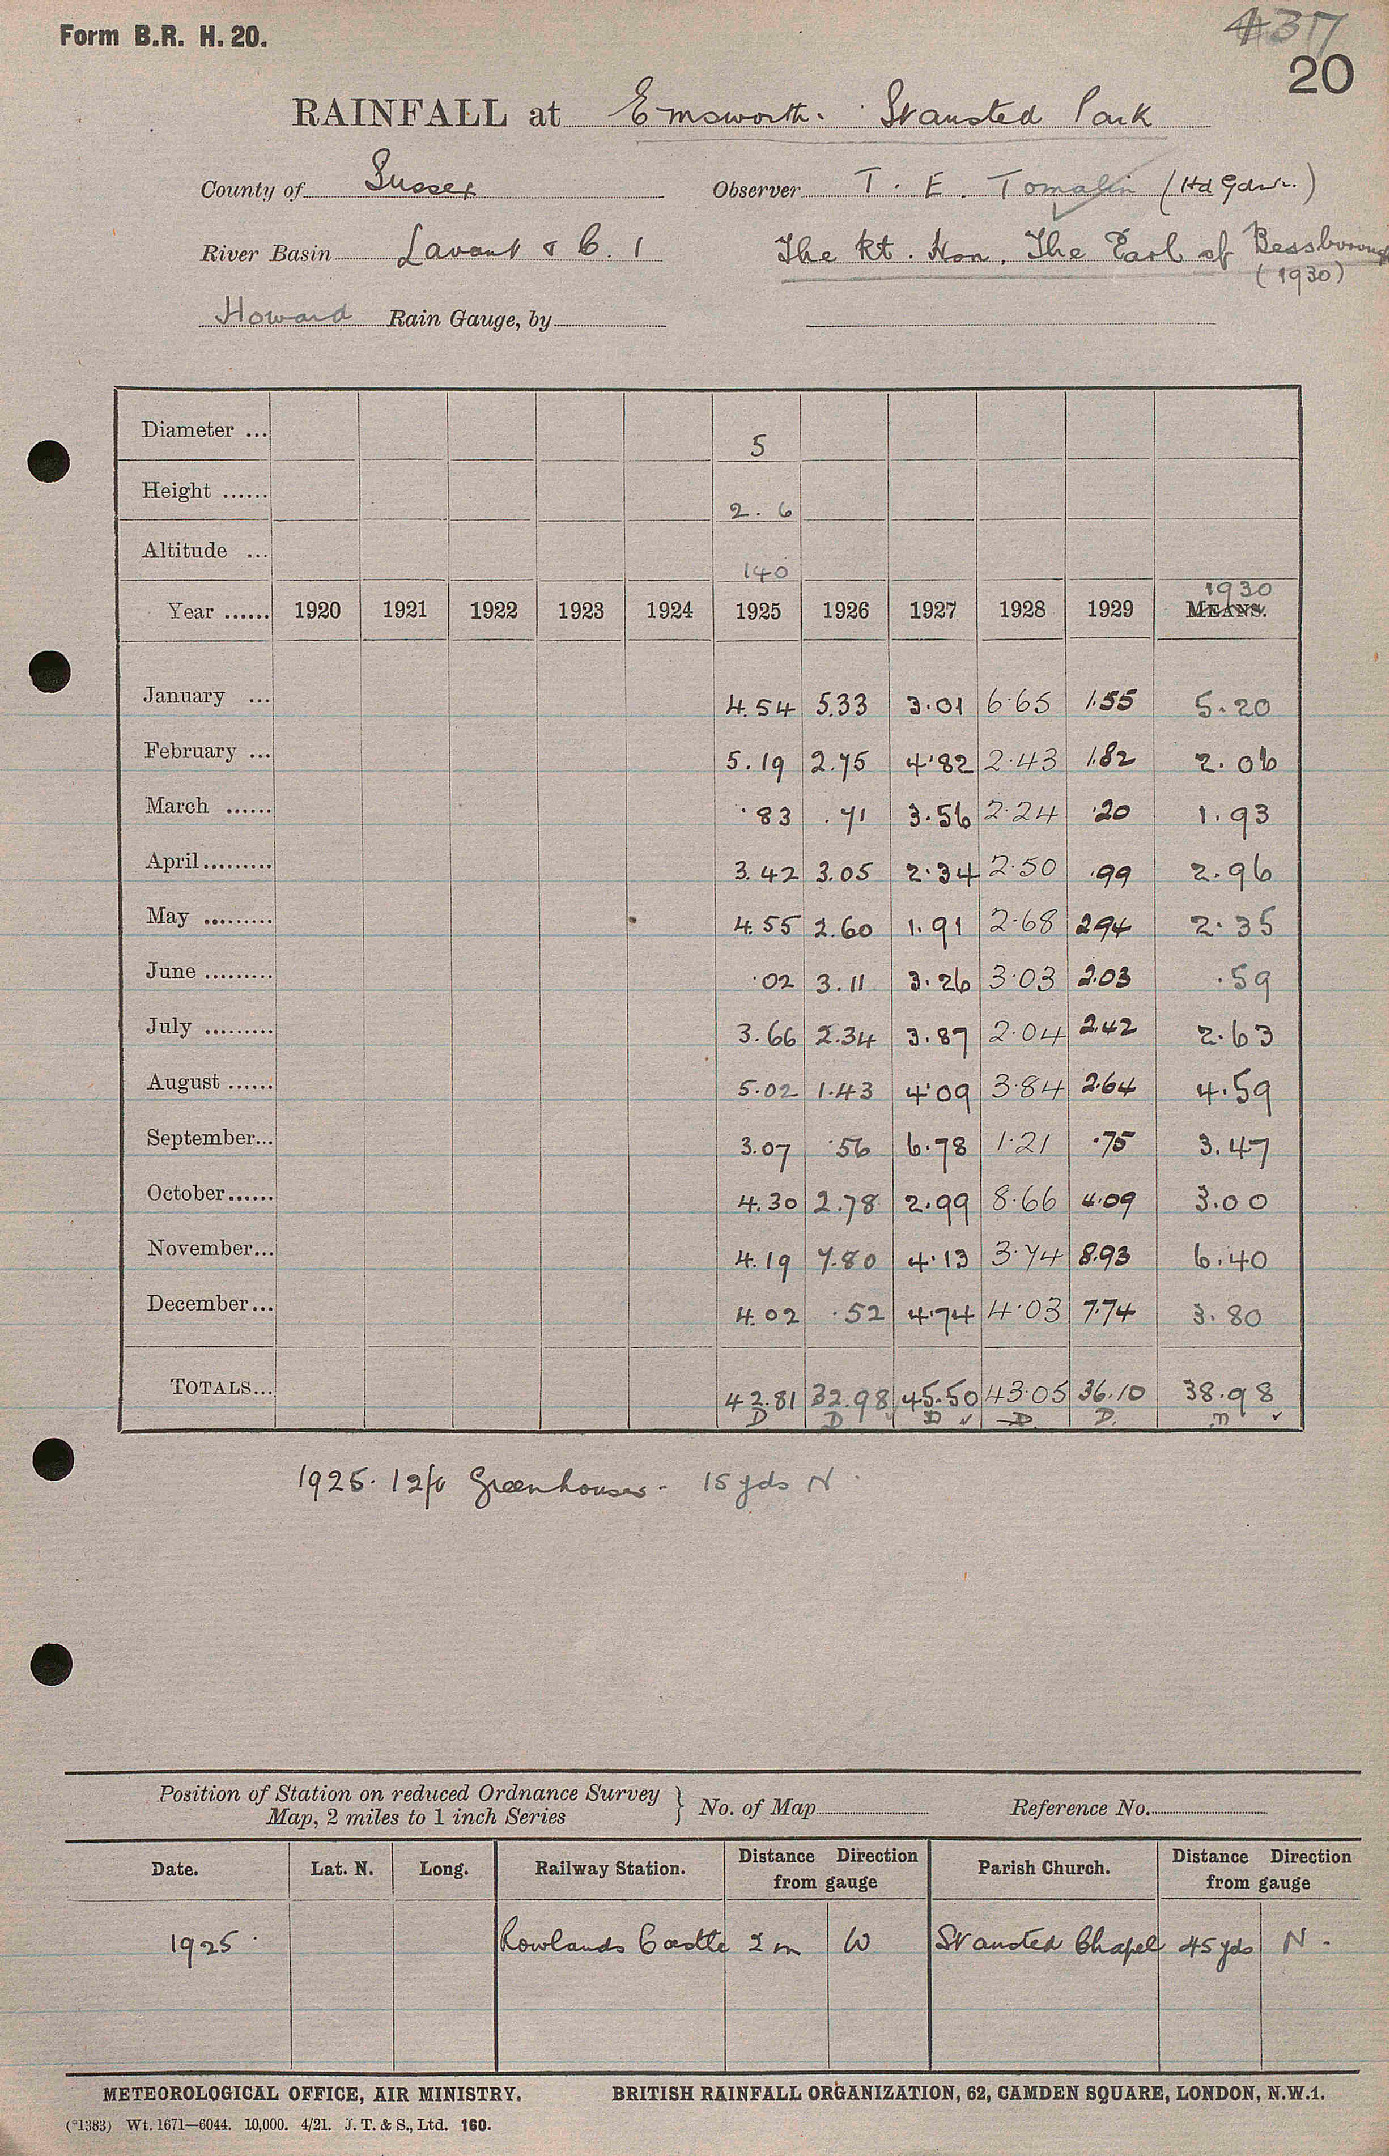 Form B.R. H. 20.
437
20
RAINFALL at Emsworth. Stansted Park
County of Sussex Observer T. E. Tomalin (Hd Gdnr.)
River Basin Lavant & C. 1 The Rt. Hon. The Earl of Bessborough
(1930)
Howard Rain Gauge, by
Diameter ... 5
Height ...... 2. 6
Altitude ... 140
1930
Year ...... 1920 1921 1922 1923 1924 1925 1926 1927 1928 1929 MEANS.
January ... 4.54 5.33 3.01 6.65 1.55 5.20
February ... 5.19 2.75 4.82 2.43 1.82 2.06
March ...... .83 .71 3.56 2.24 .20 1.93
April......... 3.42 3.05 2.34 2.50 .99 2.96
May ......... 4.55 2.60 1.91 2.68 2.94 2.35
June ......... .02 3.11 3.26 3.03 2.03 .59
July ......... 3.66 2.34 3.87 2.04 2.42 2.63
August ...... 5.02 1.43 4.09 3.84 2.64 4.59
September... 3.07 .56 6.78 1.21 .75 3.47
October...... 4.30 2.78 2.99 8.66 4.09 3.00
November... 4.19 7.80 4.13 3.74 8.93 6.40
December... 4.02 .52 4.74 4.03 7.74 3.80
TOTALS... 42.81 32.98 45.50 43.05 36.10 38.98
D D D D D.
1925. 12ft Greenhouses. 15 yds N.
Position of Station on reduced Ordnance Survey
Map, 2 miles to 1 inch Series } No. of Map Reference No.
Date. Lat. N. Long. Railway Station. Distance Direction from gauge Parish Church. Distance Direction from gauge
1925. Rowlands Castle 2 m W Stansted Chapel 45 yds N.
METEOROLOGICAL OFFICE, AIR MINISTRY. BRITISH RAINFALL ORGANIZATION, 62, CAMDEN SQUARE, LONDON, N.W.1.
(*1383) Wt. 1671—6044. 10,000. 4/21. J. T. & S., Ltd. 160.